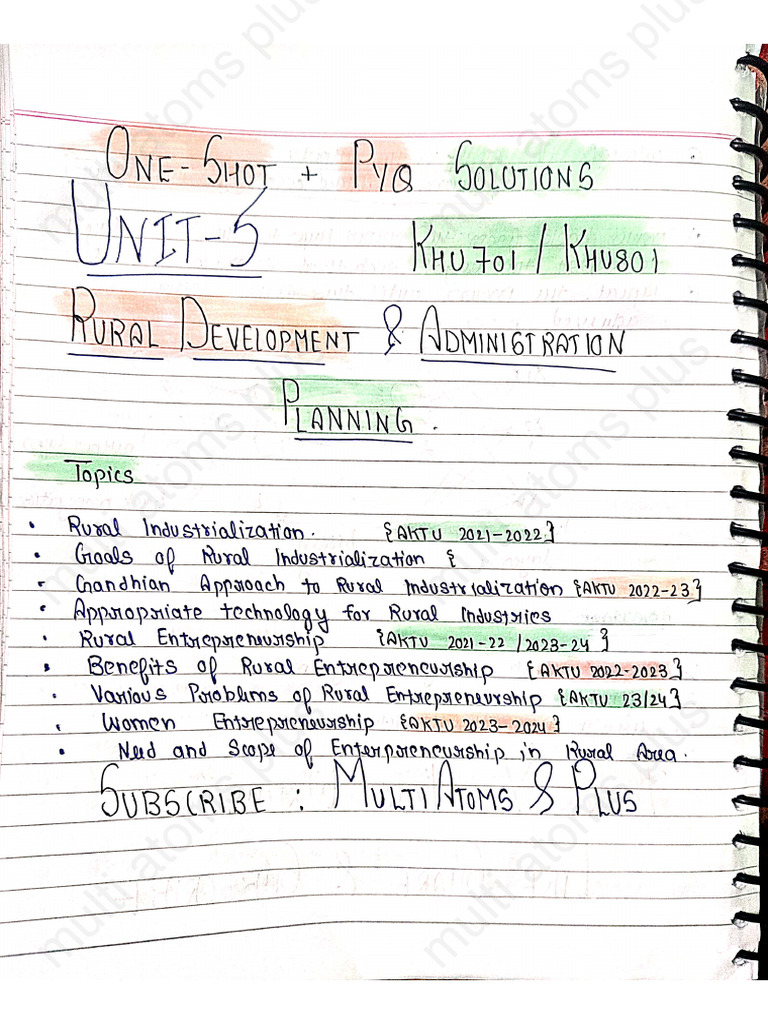 ONE-SHOT + PYQ SOLUTIONS
UNIT-5
KHU701 / KHU801
RURAL DEVELOPMENT & ADMINISTRATION
PLANNING.
Topics
• Rural Industrialization. {AKTU 2021-2022}
• Goals of Rural Industrialization {
• Gandhian Approach to Rural Industrialization {AKTU 2022-23}
• Appropriate technology for Rural Industries
• Rural Entrepreneurship {AKTU 2021-22 / 2023-24}
• Benefits of Rural Entrepreneurship {AKTU 2022-2023}
• Various Problems of Rural Entrepreneurship {AKTU 23/24}
• Women Entrepreneurship {AKTU 2023-2024}
• Need and Scope of Enterpreneurship in Rural Area.
SUBSCRIBE : MULTI ATOMS & PLUS
multi atoms plus
multi atoms plus
multi atoms plus
multi atoms plus
multi atoms plus
multi atoms plus